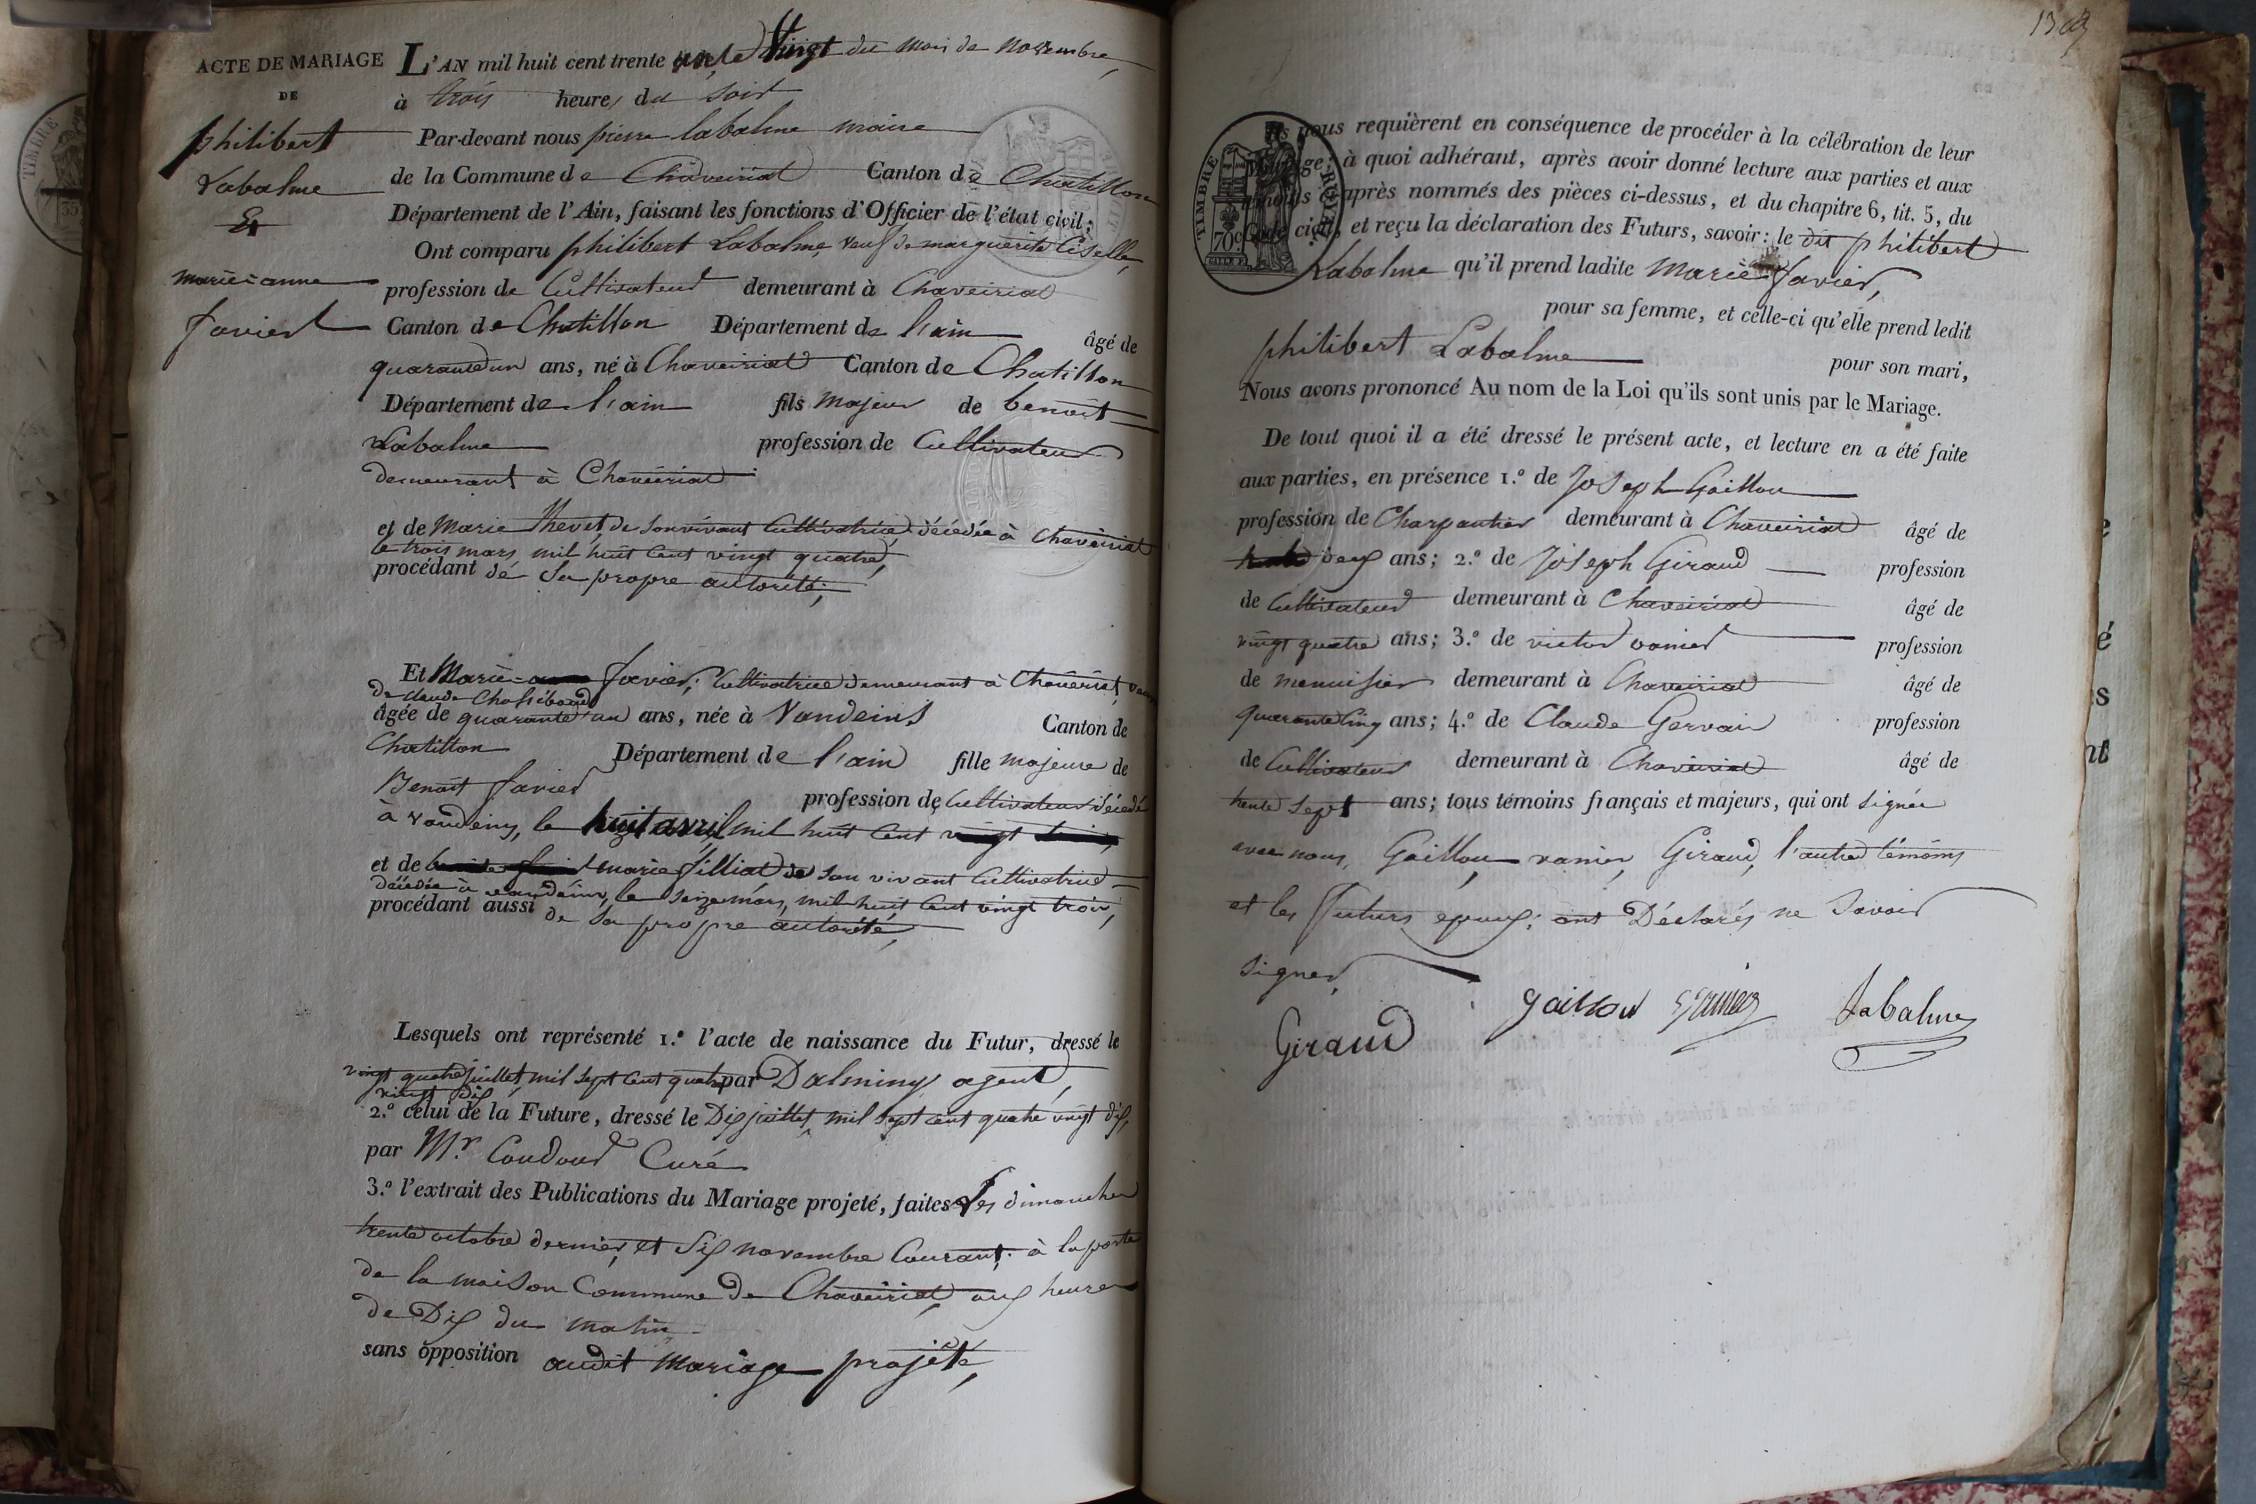 ACTE DE MARIAGE
DE
philibert
Labalme
Et
marie-anne
favier
L'AN mil huit cent trente un, le Vingt du mois de novembre,
à trois heures du soir
Par-devant nous pierre labalme maire
de la Commune de Chaveiriat Canton de Chatillon
Département de l'Ain, faisant les fonctions d'Officier de l'état civil;
Ont comparu philibert Labalme, veuf de marguerite Ciselle,
profession de Cultivateur demeurant à Chaveiriat
Canton de Chatillon Département de l'ain âgé de
quarante un ans, né à Chaveiriat Canton de Chatillon
Département de l'ain fils majeur de benoit
Labalme profession de Cultivateur
demeurant à Chaveiriat
et de Marie Thevet, de son vivant Cultivatrice, décédée à Chaveiriat
le trois mars mil huit cent vingt quatre,
procédant de sa propre autorité;
Et Marie favier, Cultivatrice demeurant à Chaveiriat, veuve
de Claude
âgée de quarante un ans, née à Vandeins Canton de
Chatillon Département de l'ain fille majeure de
Benoit favier profession de Cultivateur décédé
à vandeins, le huit avril mil huit cent vingt
et de marie filliat de son vivant Cultivatrice
décédée à vandeins, le seize mars, mil huit cent vingt trois,
procédant aussi de sa propre autorité,
Lesquels ont représenté 1.º l'acte de naissance du Futur, dressé le
vingt quatre juillet, mil sept cent quatre par Dalminy agent,
vingt dix
2.º celui de la Future, dressé le Dix juillet, mil sept cent quatre vingt dix,
par Mr. Coudour Curé
3.º l'extrait des Publications du Mariage projeté, faites Les dimanches
trente octobre dernier, et Six novembre Courant, à la porte
de la maison Commune de Chaveiriat, aux heures
de Dix du matin
sans opposition audit mariage projeté,
Ils nous requièrent en conséquence de procéder à la célébration de leur
mariage; à quoi adhérant, après avoir donné lecture aux parties et aux
témoins après nommés des pièces ci-dessus, et du chapitre 6, tit. 5, du
Code civil, et reçu la déclaration des Futurs, savoir: le dit philibert
Labalme qu'il prend ladite Marie favier,
pour sa femme, et celle-ci qu'elle prend ledit
philibert Labalme pour son mari,
Nous avons prononcé Au nom de la Loi qu'ils sont unis par le Mariage.
De tout quoi il a été dressé le présent acte, et lecture en a été faite
aux parties, en présence 1.º de Joseph Gaillou
profession de Charpentier demeurant à Chaveiriat âgé de
deux ans; 2.º de Joseph Giraud profession
de Cultivateur demeurant à Chaveiriat âgé de
vingt quatre ans; 3.º de victor vanier profession
de menuisier demeurant à Chaveiriat âgé de
quarante Cinq ans; 4.º de Claude Gervais profession
de Cultivateur demeurant à Chaveiriat âgé de
trente Sept ans; tous témoins français et majeurs, qui ont signé
avec nous, Gaillou, vanier, Giraud, l'autre témoins
et les futurs epoux; ont Déclarés ne Savoir
Signer,
Giraud gaillou Labalme
TIMBRE ROYAL
70 c